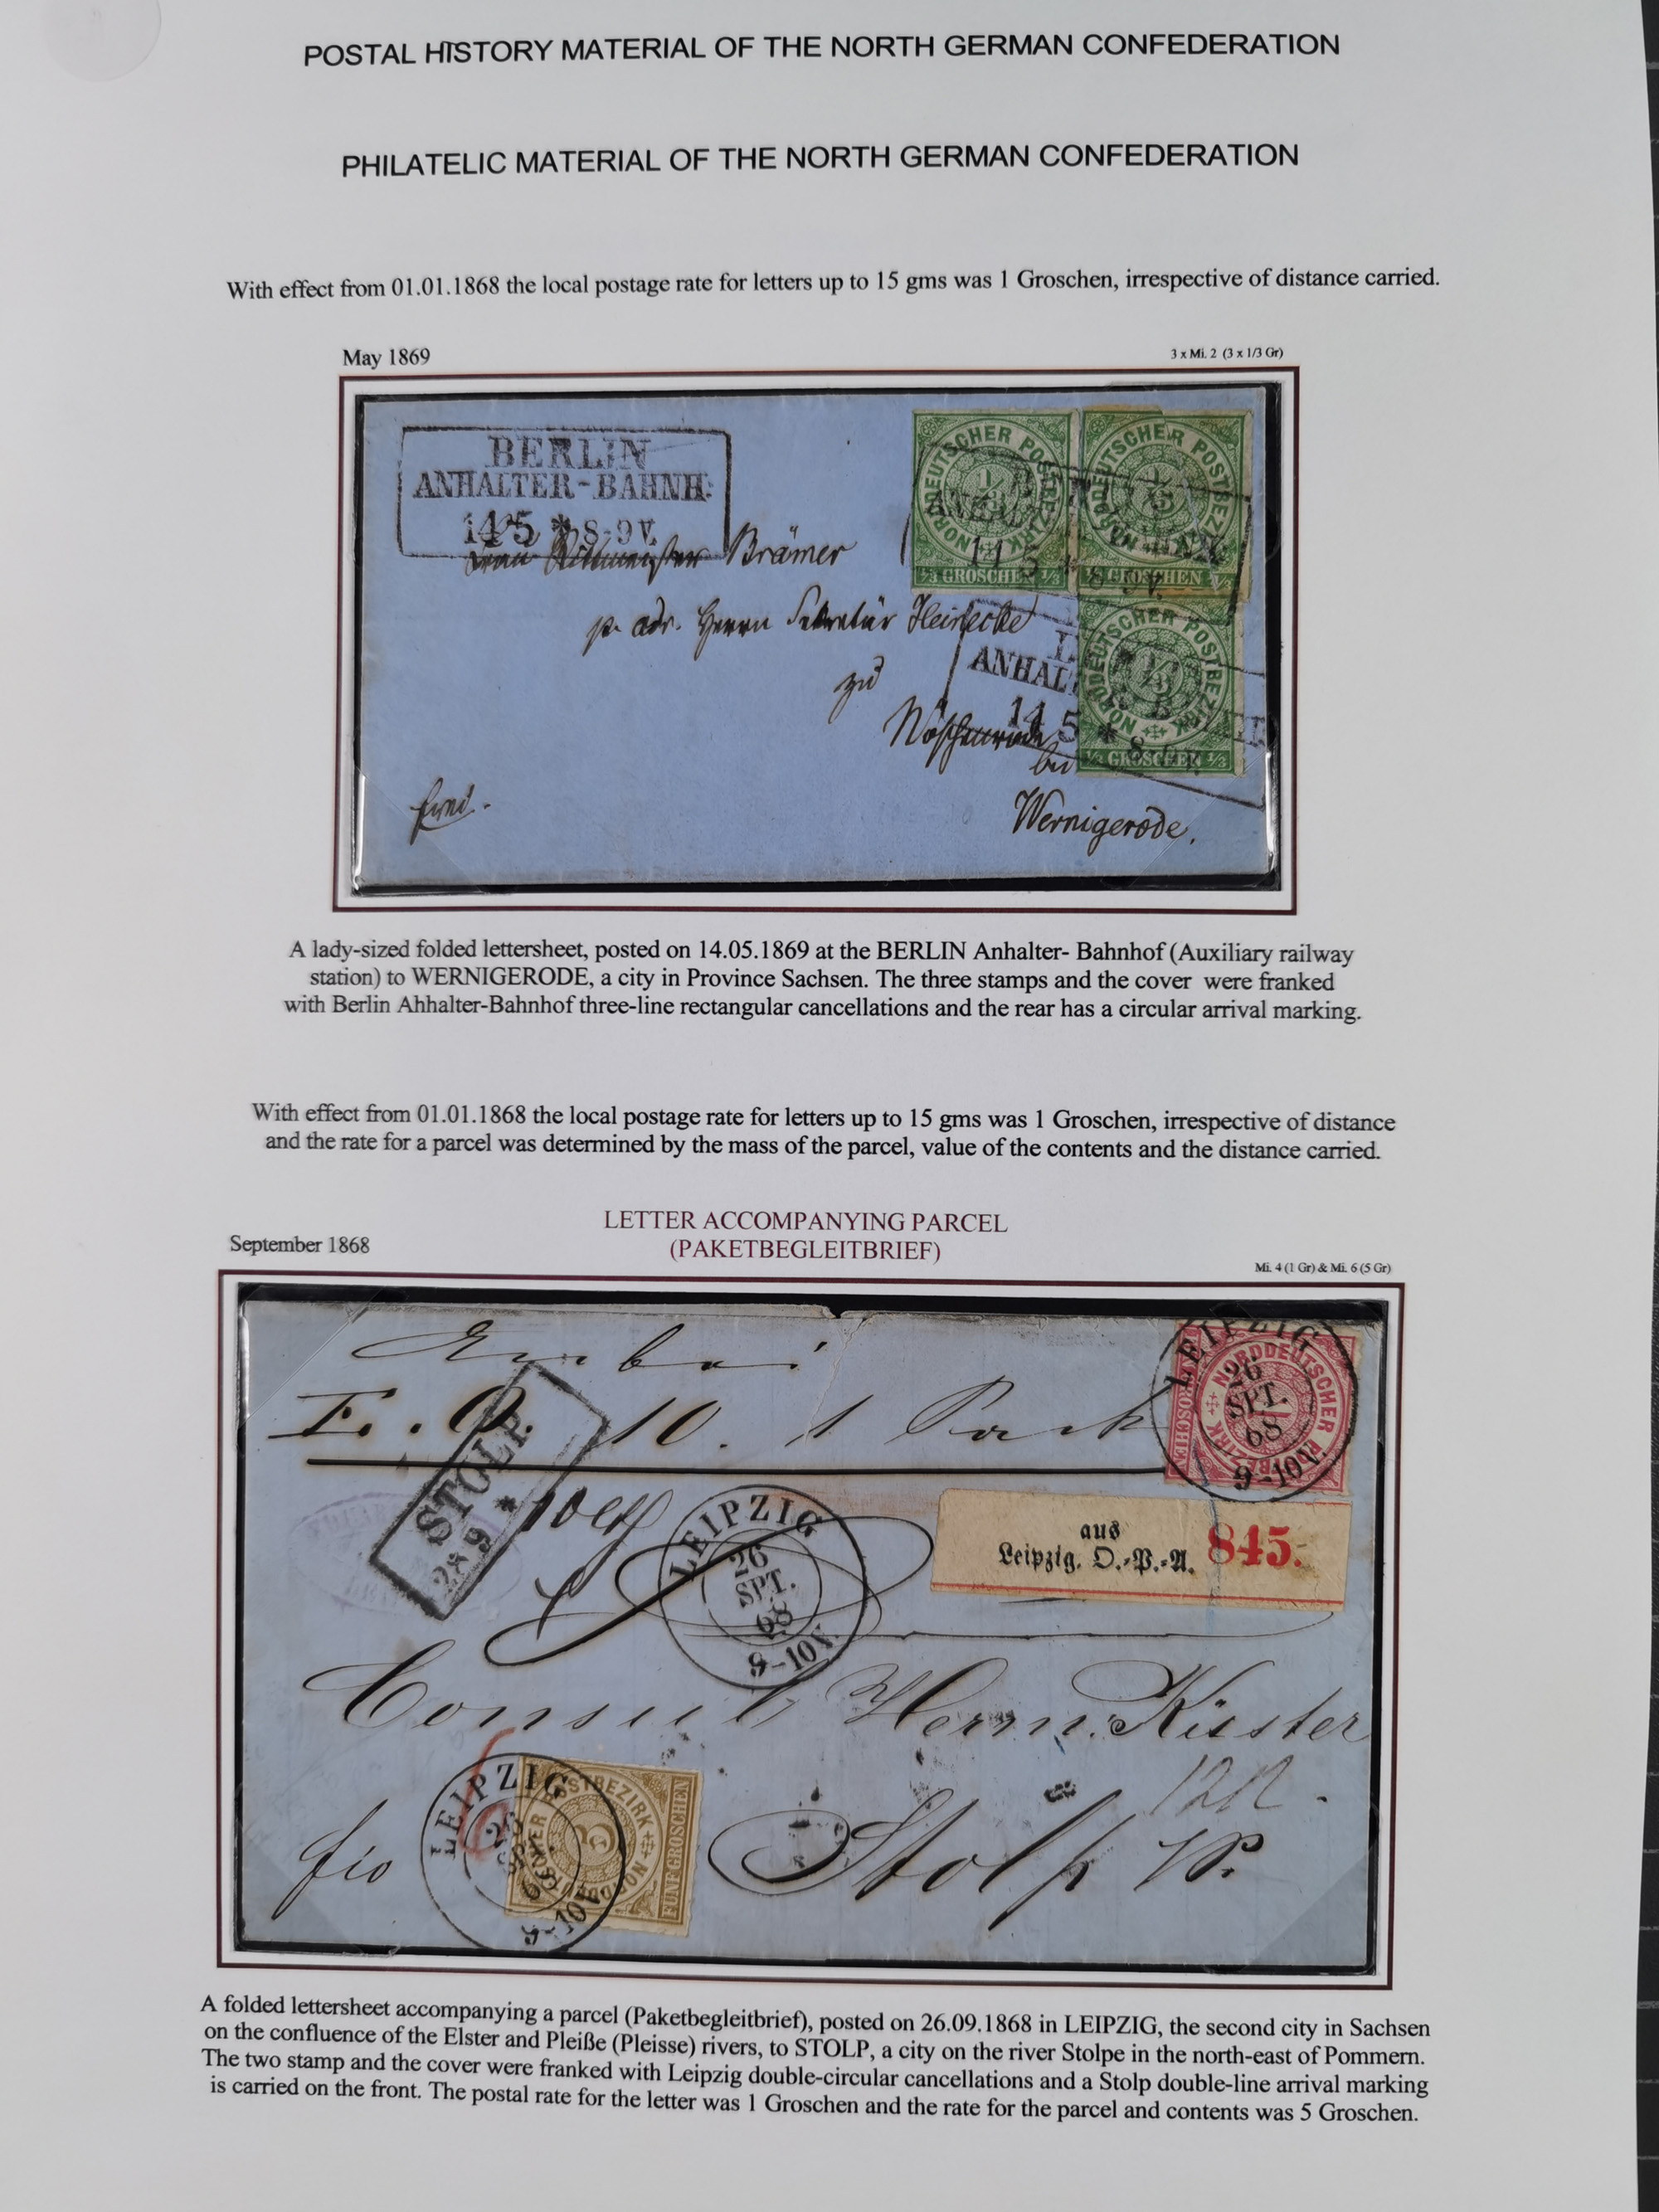 POSTAL HISTORY MATERIAL OF THE NORTH GERMAN CONFEDERATION
PHILATELIC MATERIAL OF THE NORTH GERMAN CONFEDERATION
With effect from 01.01.1868 the local postage rate for letters up to 15 gms was 1 Groschen, irrespective of distance carried.
May 1869
3 x Mi. 2 (3 x 1/3 Gr)
BERLIN
ANHALTER-BAHNH:
14 5 * 8-9 V.
NORDDEUTSCHER POSTBEZIRK
1/3 GROSCHEN 1/3
NORDDEUTSCHER POSTBEZIRK
1/3 GROSCHEN 1/3
Brämer
p. adr. Herrn Sekretär Heinecke
zu
NORDDEUTSCHER POSTBEZIRK
1/3 GROSCHEN 1/3
ANHAL
14 5 * 8
bei
Wernigerode.
A lady-sized folded lettersheet, posted on 14.05.1869 at the BERLIN Anhalter- Bahnhof (Auxiliary railway
station) to WERNIGERODE, a city in Province Sachsen. The three stamps and the cover were franked
with Berlin Ahhalter-Bahnhof three-line rectangular cancellations and the rear has a circular arrival marking.
With effect from 01.01.1868 the local postage rate for letters up to 15 gms was 1 Groschen, irrespective of distance
and the rate for a parcel was determined by the mass of the parcel, value of the contents and the distance carried.
LETTER ACCOMPANYING PARCEL
(PAKETBEGLEITBRIEF)
September 1868
Mi. 4 (1 Gr) & Mi. 6 (5 Gr)
10. 1 Pack
LEIPZIG
26
SPT.
68
9-10V.
NORDDEUTSCHER POSTBEZIRK
STOLP
28 9 *
LEIPZIG
26
SPT.
68
9-10V.
aus
Leipzig. O.-P.-A. 845.
Consul Herrn Küster
LEIPZIG
26
68
9-10V.
NORDDEUTSCHER POSTBEZIRK
FÜNF GROSCHEN
Stolp
A folded lettersheet accompanying a parcel (Paketbegleitbrief), posted on 26.09.1868 in LEIPZIG, the second city in Sachsen
on the confluence of the Elster and Pleiße (Pleisse) rivers, to STOLP, a city on the river Stolpe in the north-east of Pommern.
The two stamp and the cover were franked with Leipzig double-circular cancellations and a Stolp double-line arrival marking
is carried on the front. The postal rate for the letter was 1 Groschen and the rate for the parcel and contents was 5 Groschen.